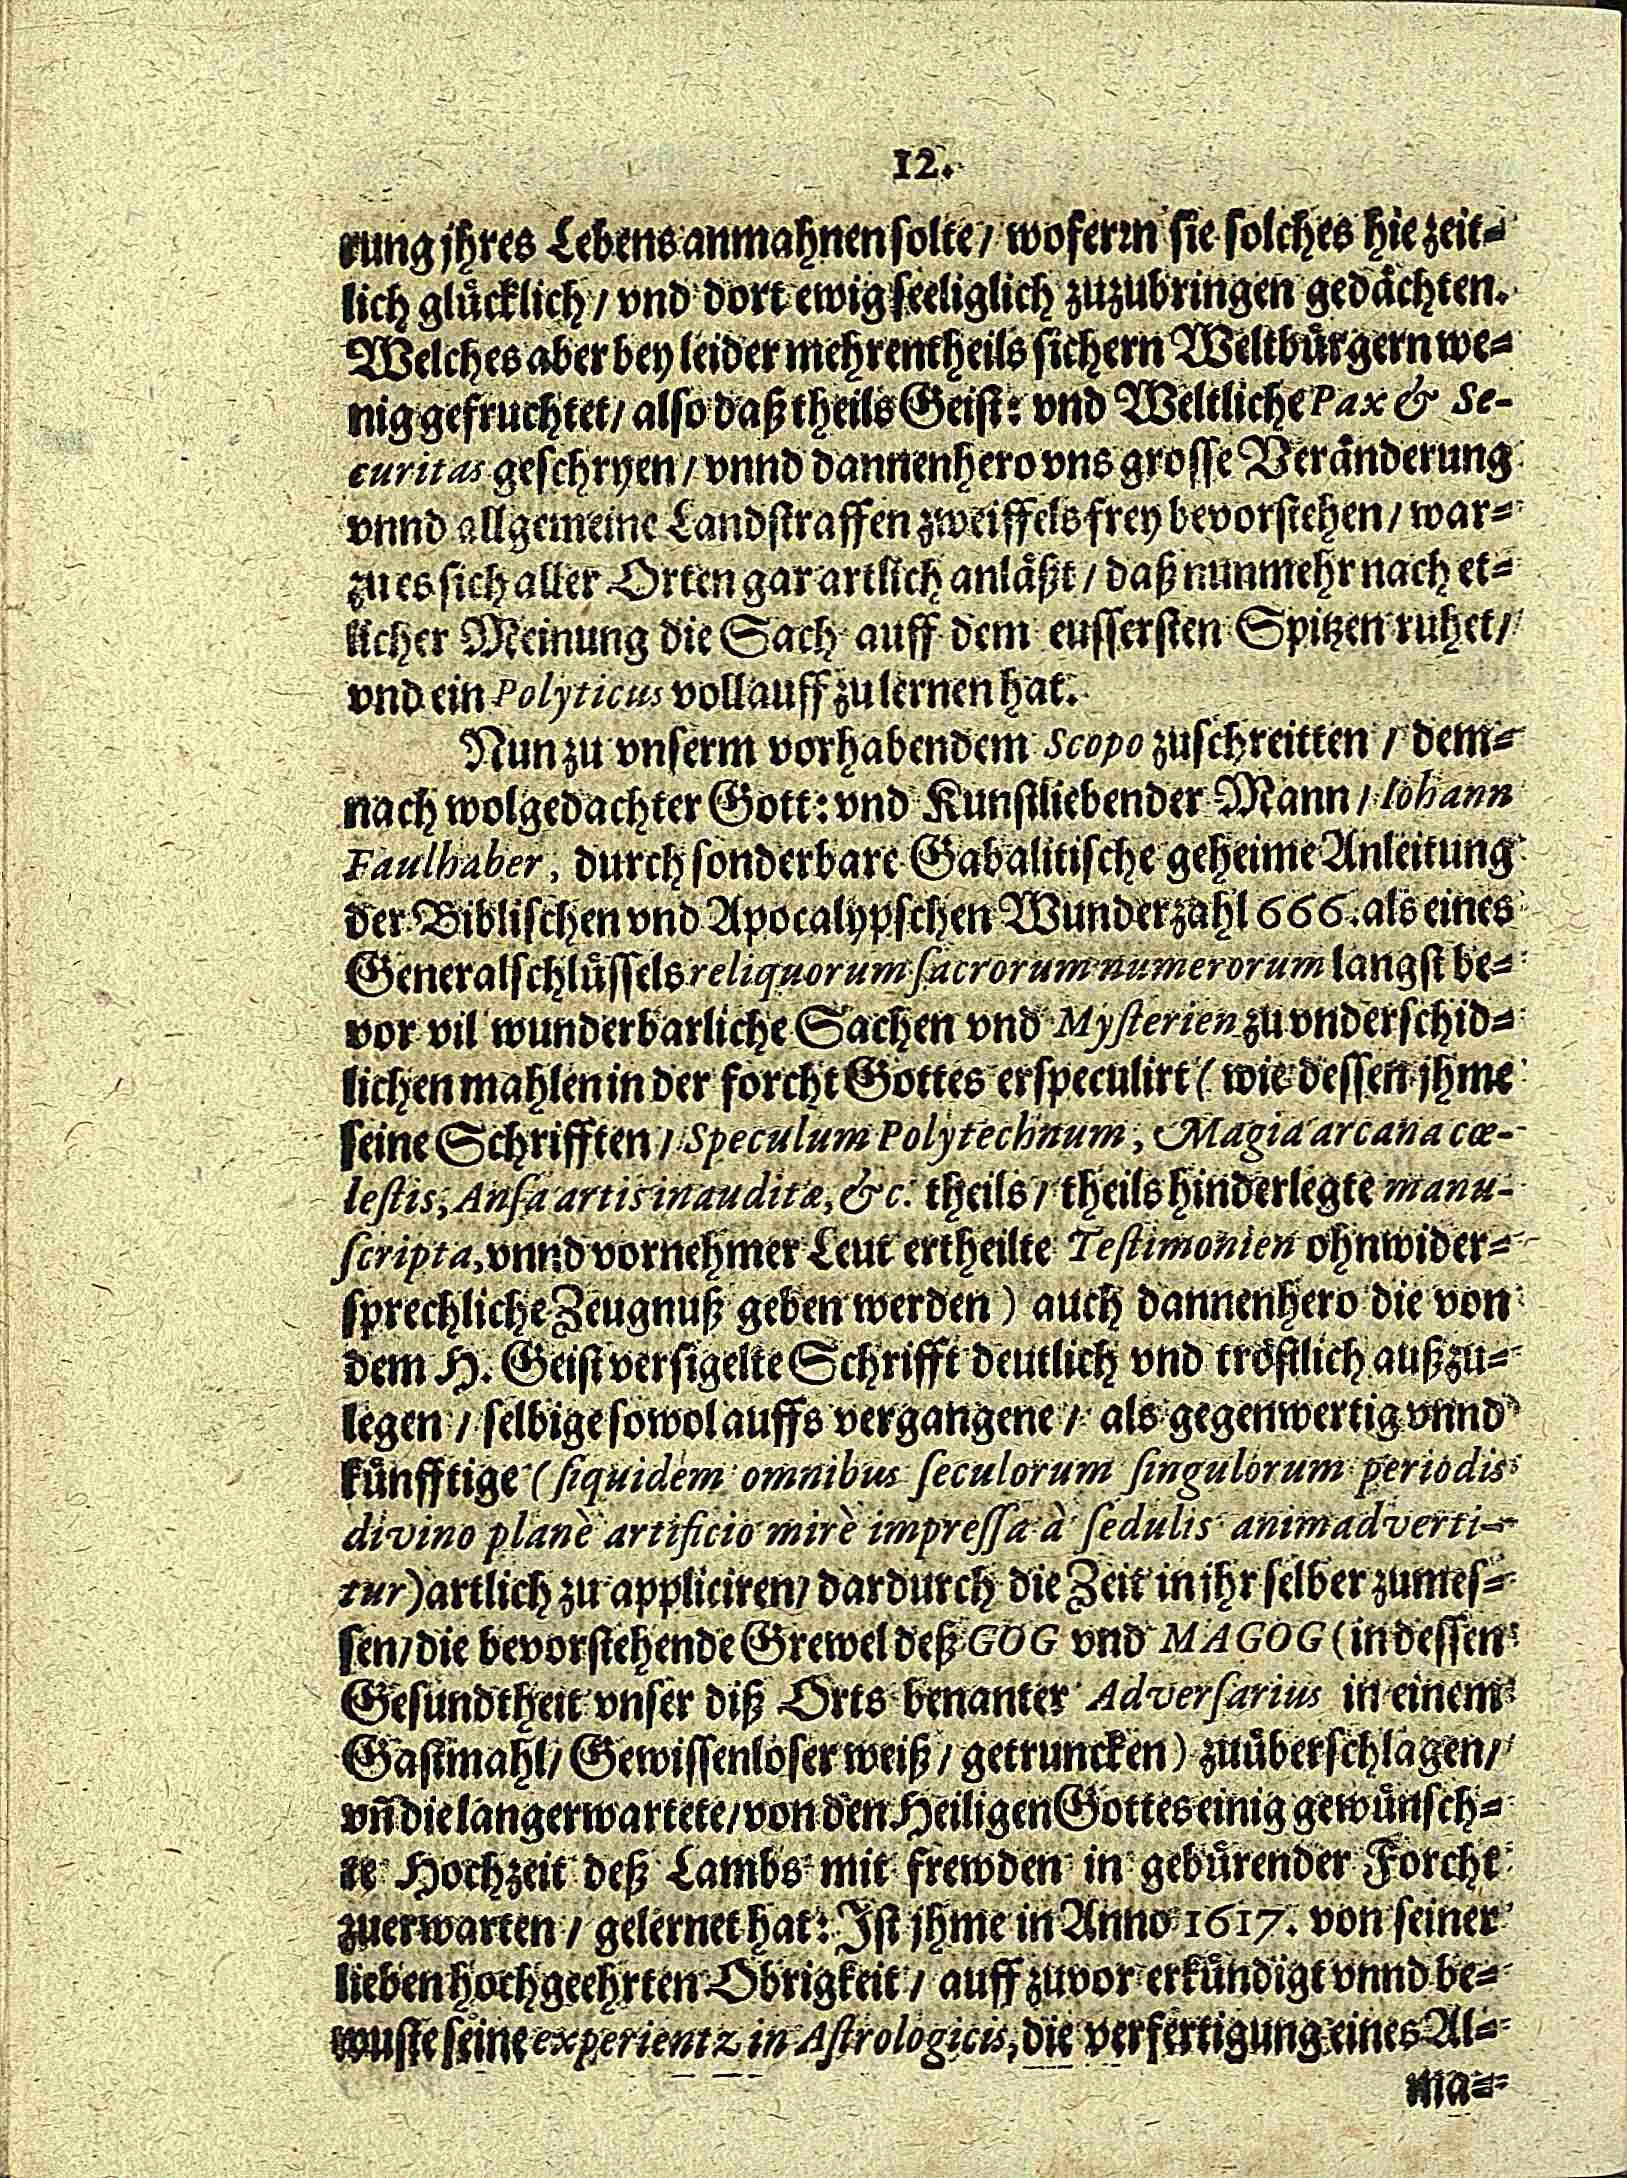 12.
rung jhres Lebens anmahnen solte / wofern sie solches hie zeit-
lich glücklich / vnd dort ewig seeliglich zuzubringen gedächten.
Welches aber bey leider mehrentheils sichern Weltbürgern we-
nig gefruchtet / also daß theils Geist: vnd Weltliche Pax & Se-
curitas geschryen / vnnd dannenhero vns grosse Veränderung
vnnd allgemeine Landstraffen zweiffels frey bevorstehen / war-
zu es sich aller Orten gar artlich anläßt / daß nunmehr nach et-
licher Meinung die Sach auff dem eussersten Spitzen ruhet /
vnd ein Polyticus vollauff zu lernen hat.
Nun zu vnserm vorhabendem Scopo zuschreitten / dem-
nach wolgedachter Gott: vnd Kunstliebender Mann / Iohann
Faulhaber, durch sonderbare Gabalitische geheime Anleitung
der Biblischen vnd Apocalypschen Wunderzahl 666. als eines
Generalschlüssels reliquorum sacrorum numerorum langst be-
vor vil wunderbarliche Sachen vnd Mysterien zu vnderschid-
lichen mahlen in der forcht Gottes erspeculirt ( wie dessen jhme
seine Schrifften / Speculum Polytechnum, Magia arcana cœ-
lestis, Ansa artis inauditæ, &c. theils / theils hinderlegte manu-
scripta, vnnd vornehmer Leut ertheilte Testimonien ohnwider-
sprechliche Zeugnuß geben werden ) auch dannenhero die von
dem H. Geist versigelte Schrifft deutlich vnd tröstlich außzu-
legen / selbige sowol auffs vergangene / als gegenwertig vnnd
künfftige ( siquidem omnibus seculorum singulorum periodis
divino planè artificio mirè impressa à sedulis animadverti-
tur) artlich zu appliciren / dardurch die Zeit in ihr selber zumes-
sen / die bevorstehende Grewel deß GOG vnd MAGOG ( in dessen
Gesundtheit vnser diß Orts benanter Adversarius in einem
Gastmahl / Gewissenloser weiß / getruncken ) zuüberschlagen /
vñ die langerwartete / von den Heiligen Gottes einig gewünsch-
te Hochzeit deß Lambs mit frewden in gebürender Forcht
zuerwarten / gelernet hat: Ist jhme in Anno 1617. von seiner
lieben hochgeehrten Obrigkeit / auff zuvor erkündigt vnnd be-
wuste seine experientz in Astrologicis, die verfertigung eines Al-
ma-